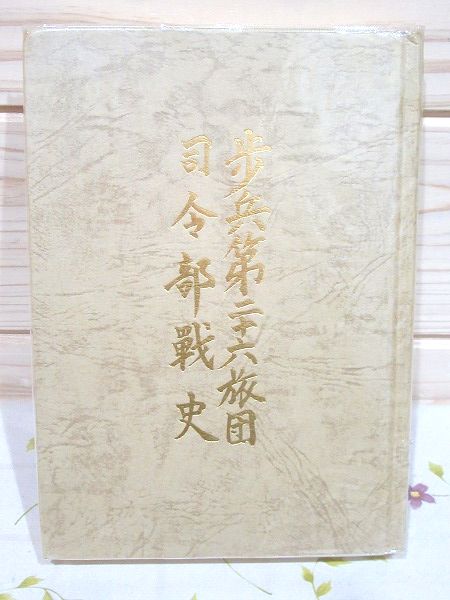 歩兵第二十六旅団
司令部戰史